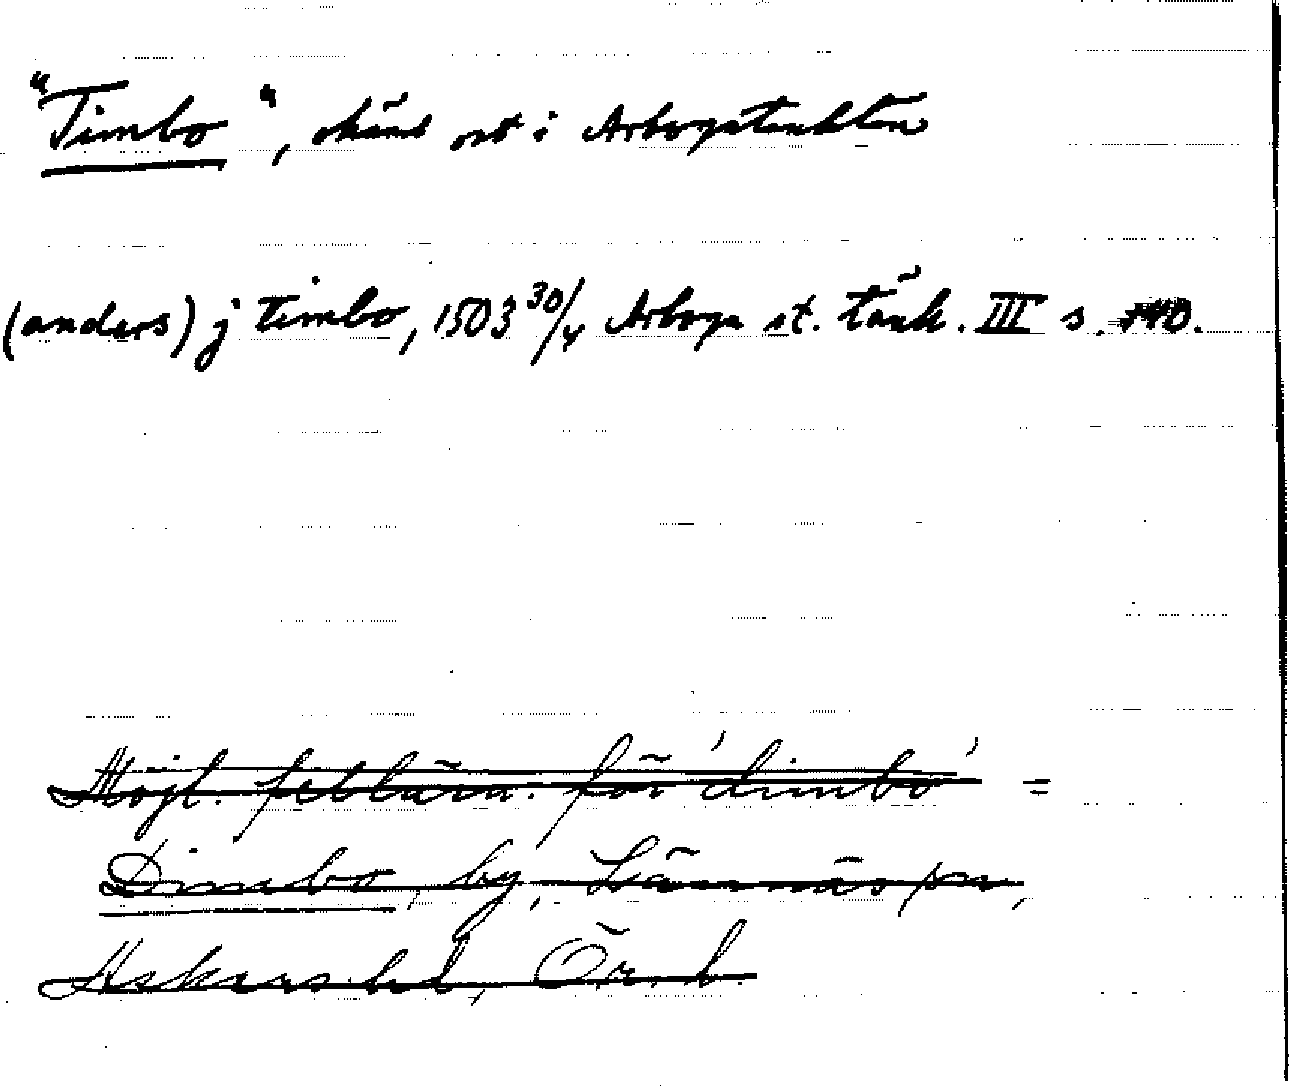 "Timbo", okänd ort i Arbogatrakten
(anders) j timbo, 1503 30/4 Arboga st. tänk. III s.
Möjl. felläsn. för 'dimbo' =
Dimbo, by, Lännäs sn,
Askers hd, Ör. l.